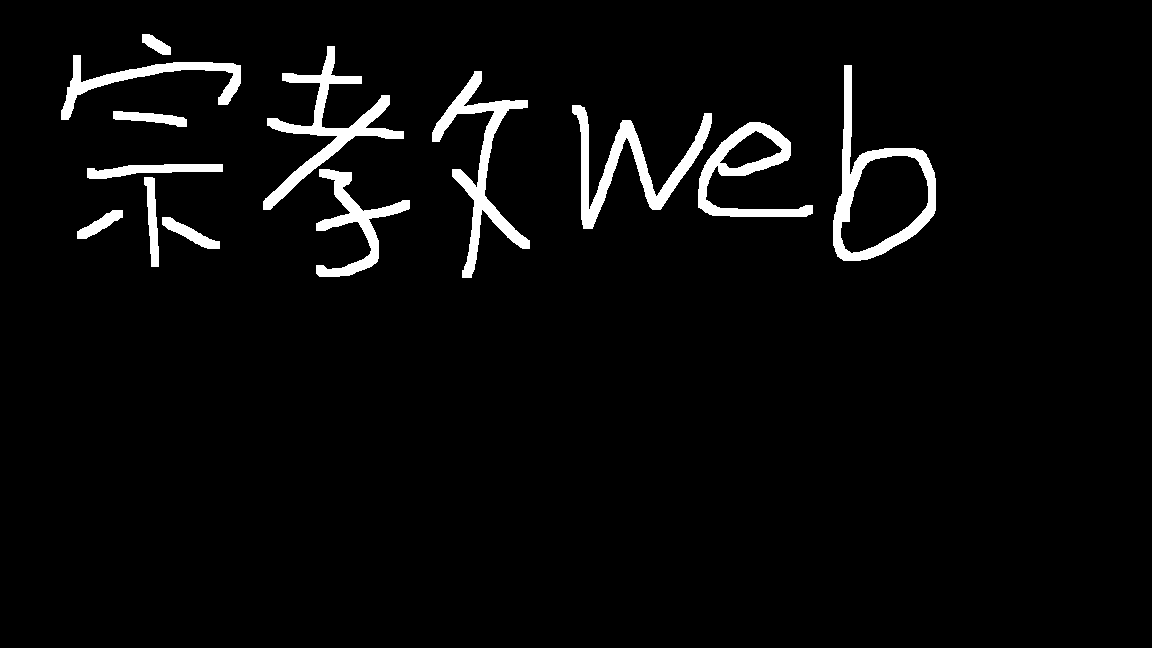 宗教web